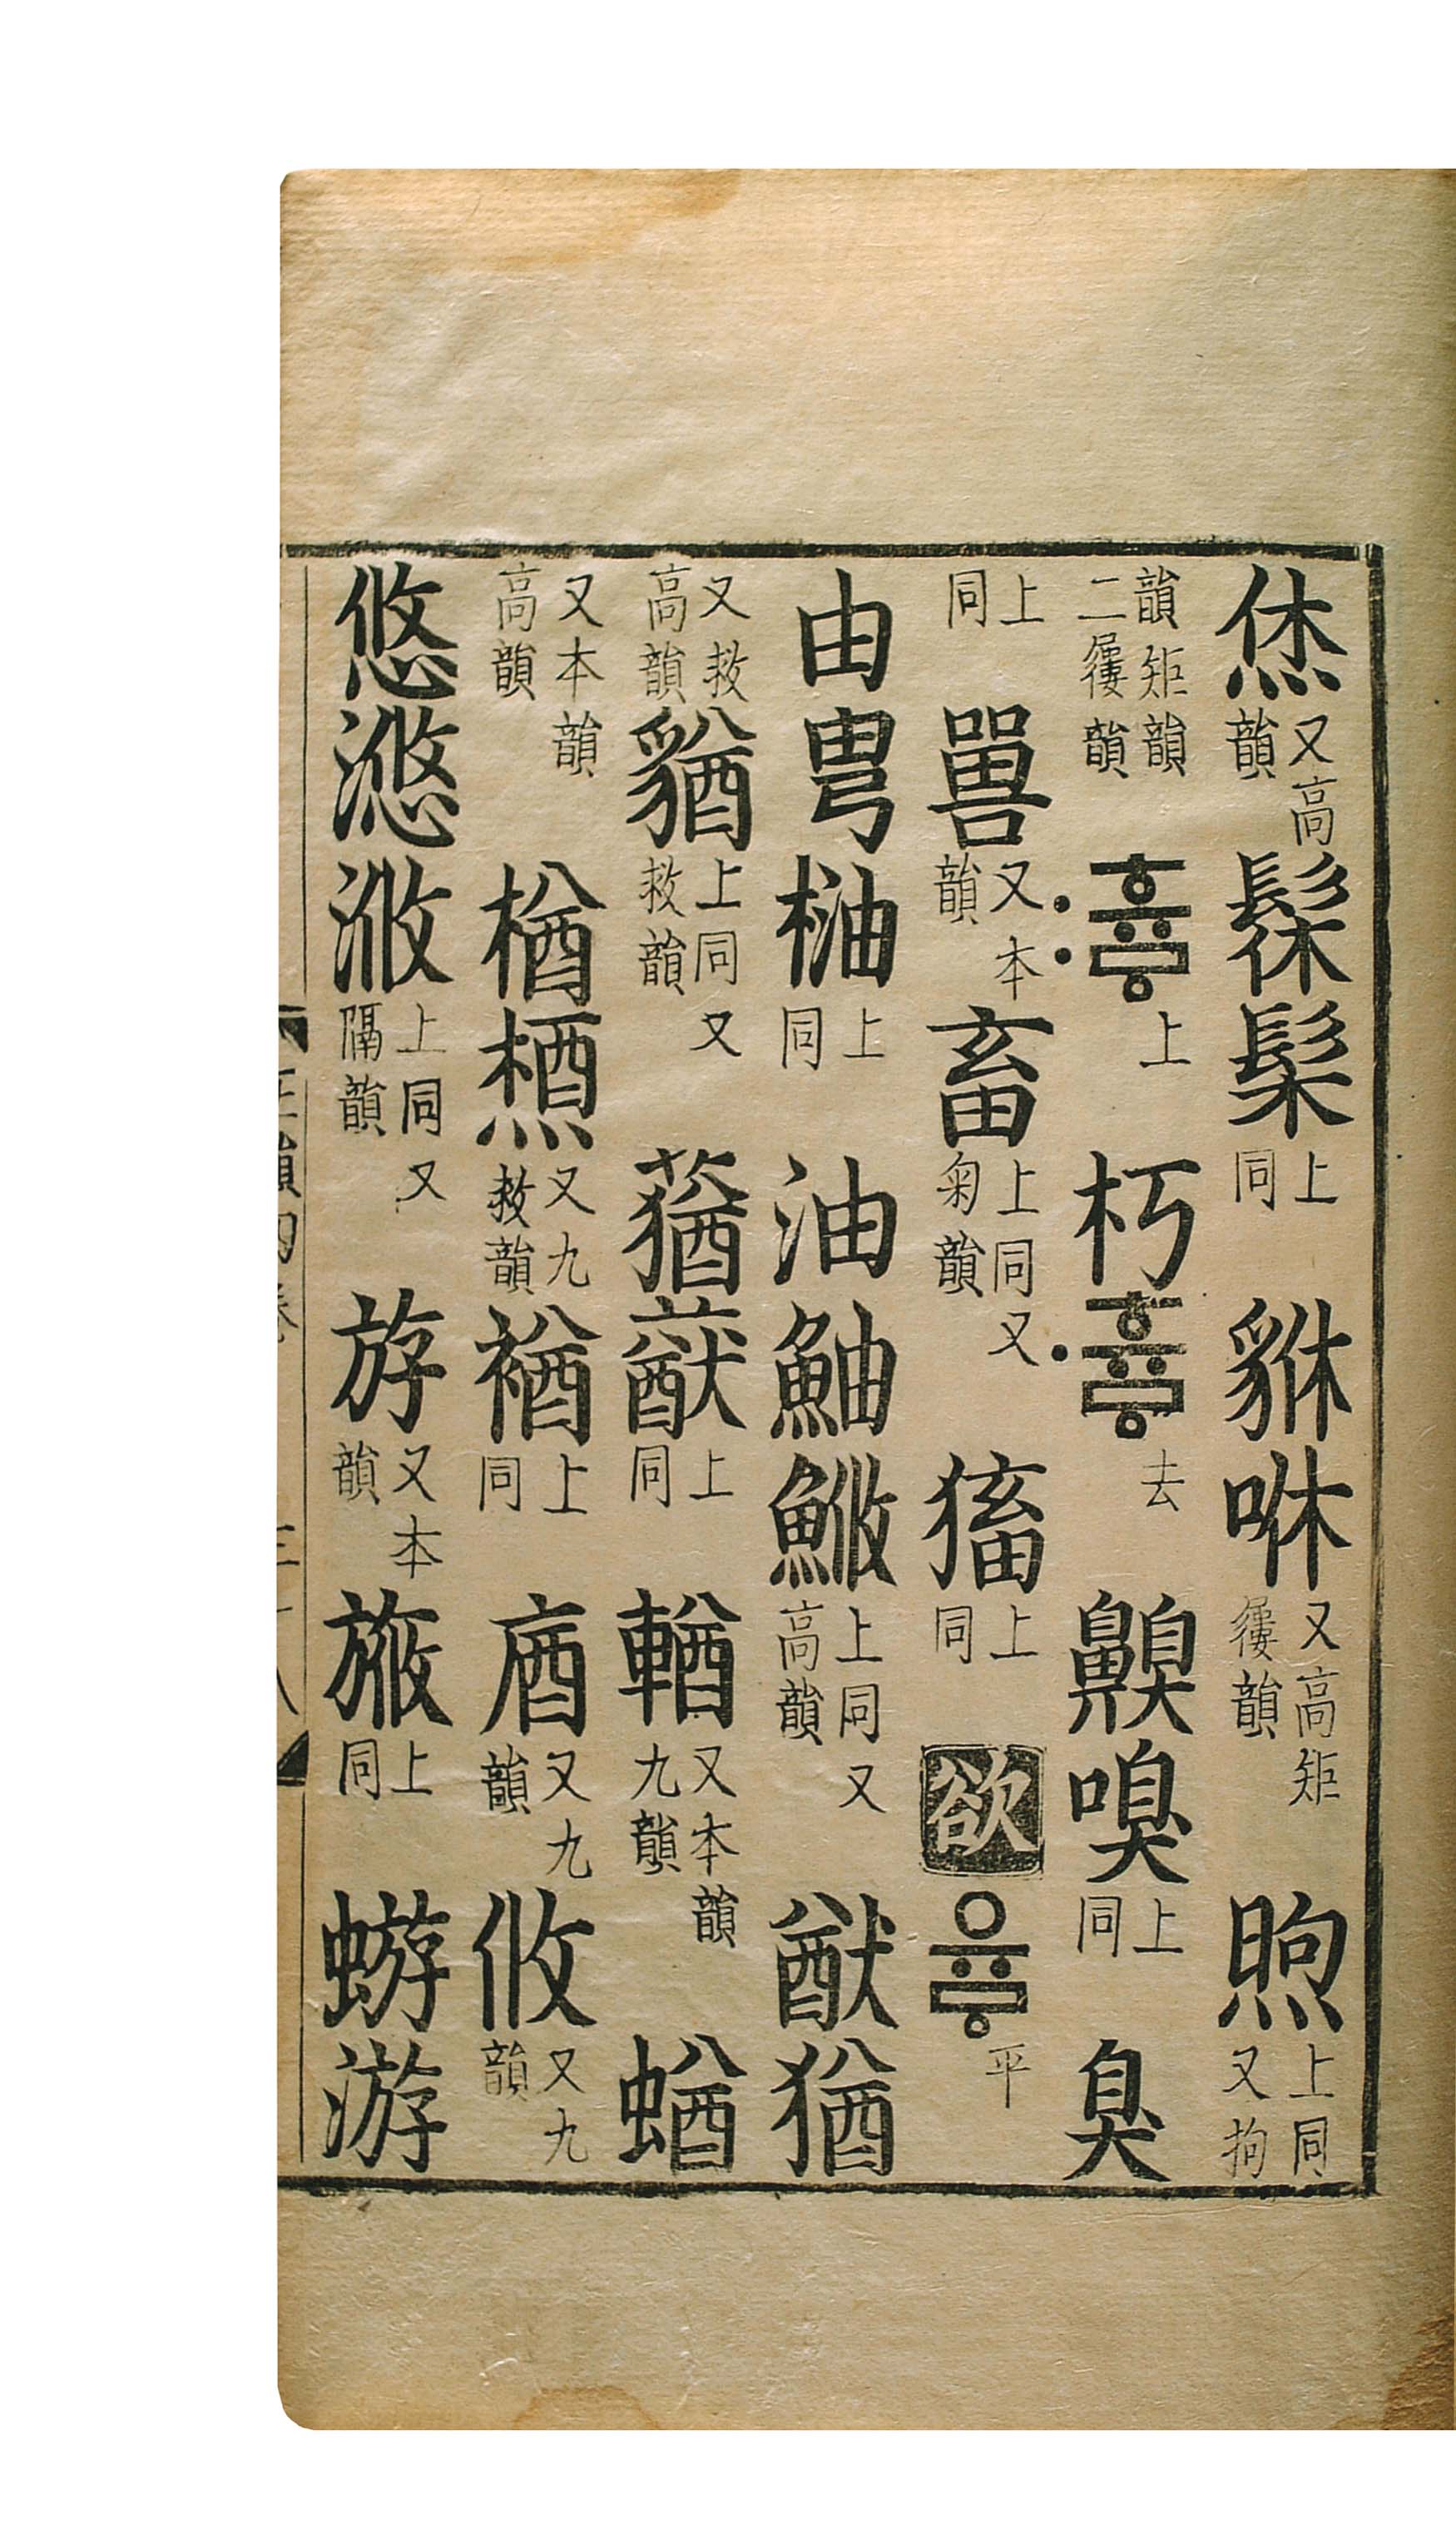 烋又高韻髹髤上同貅咻又高矩屨韻煦上同又拘
韻矩韻二屨韻휴ᇢ〯上朽휴ᇢ〮去齅嗅上同臭
上同嘼又本韻畜上同又菊韻上同欲유ᇢ平
由上同油鮋上同又高韻猷猶
又救高韻上同又救韻蕕上同輶又本韻九韻蝤
又本韻高韻楢槱又九救韻禉上同庮又九韻攸又九韻
悠滺浟上同又隔韻斿又本韻上同蝣游